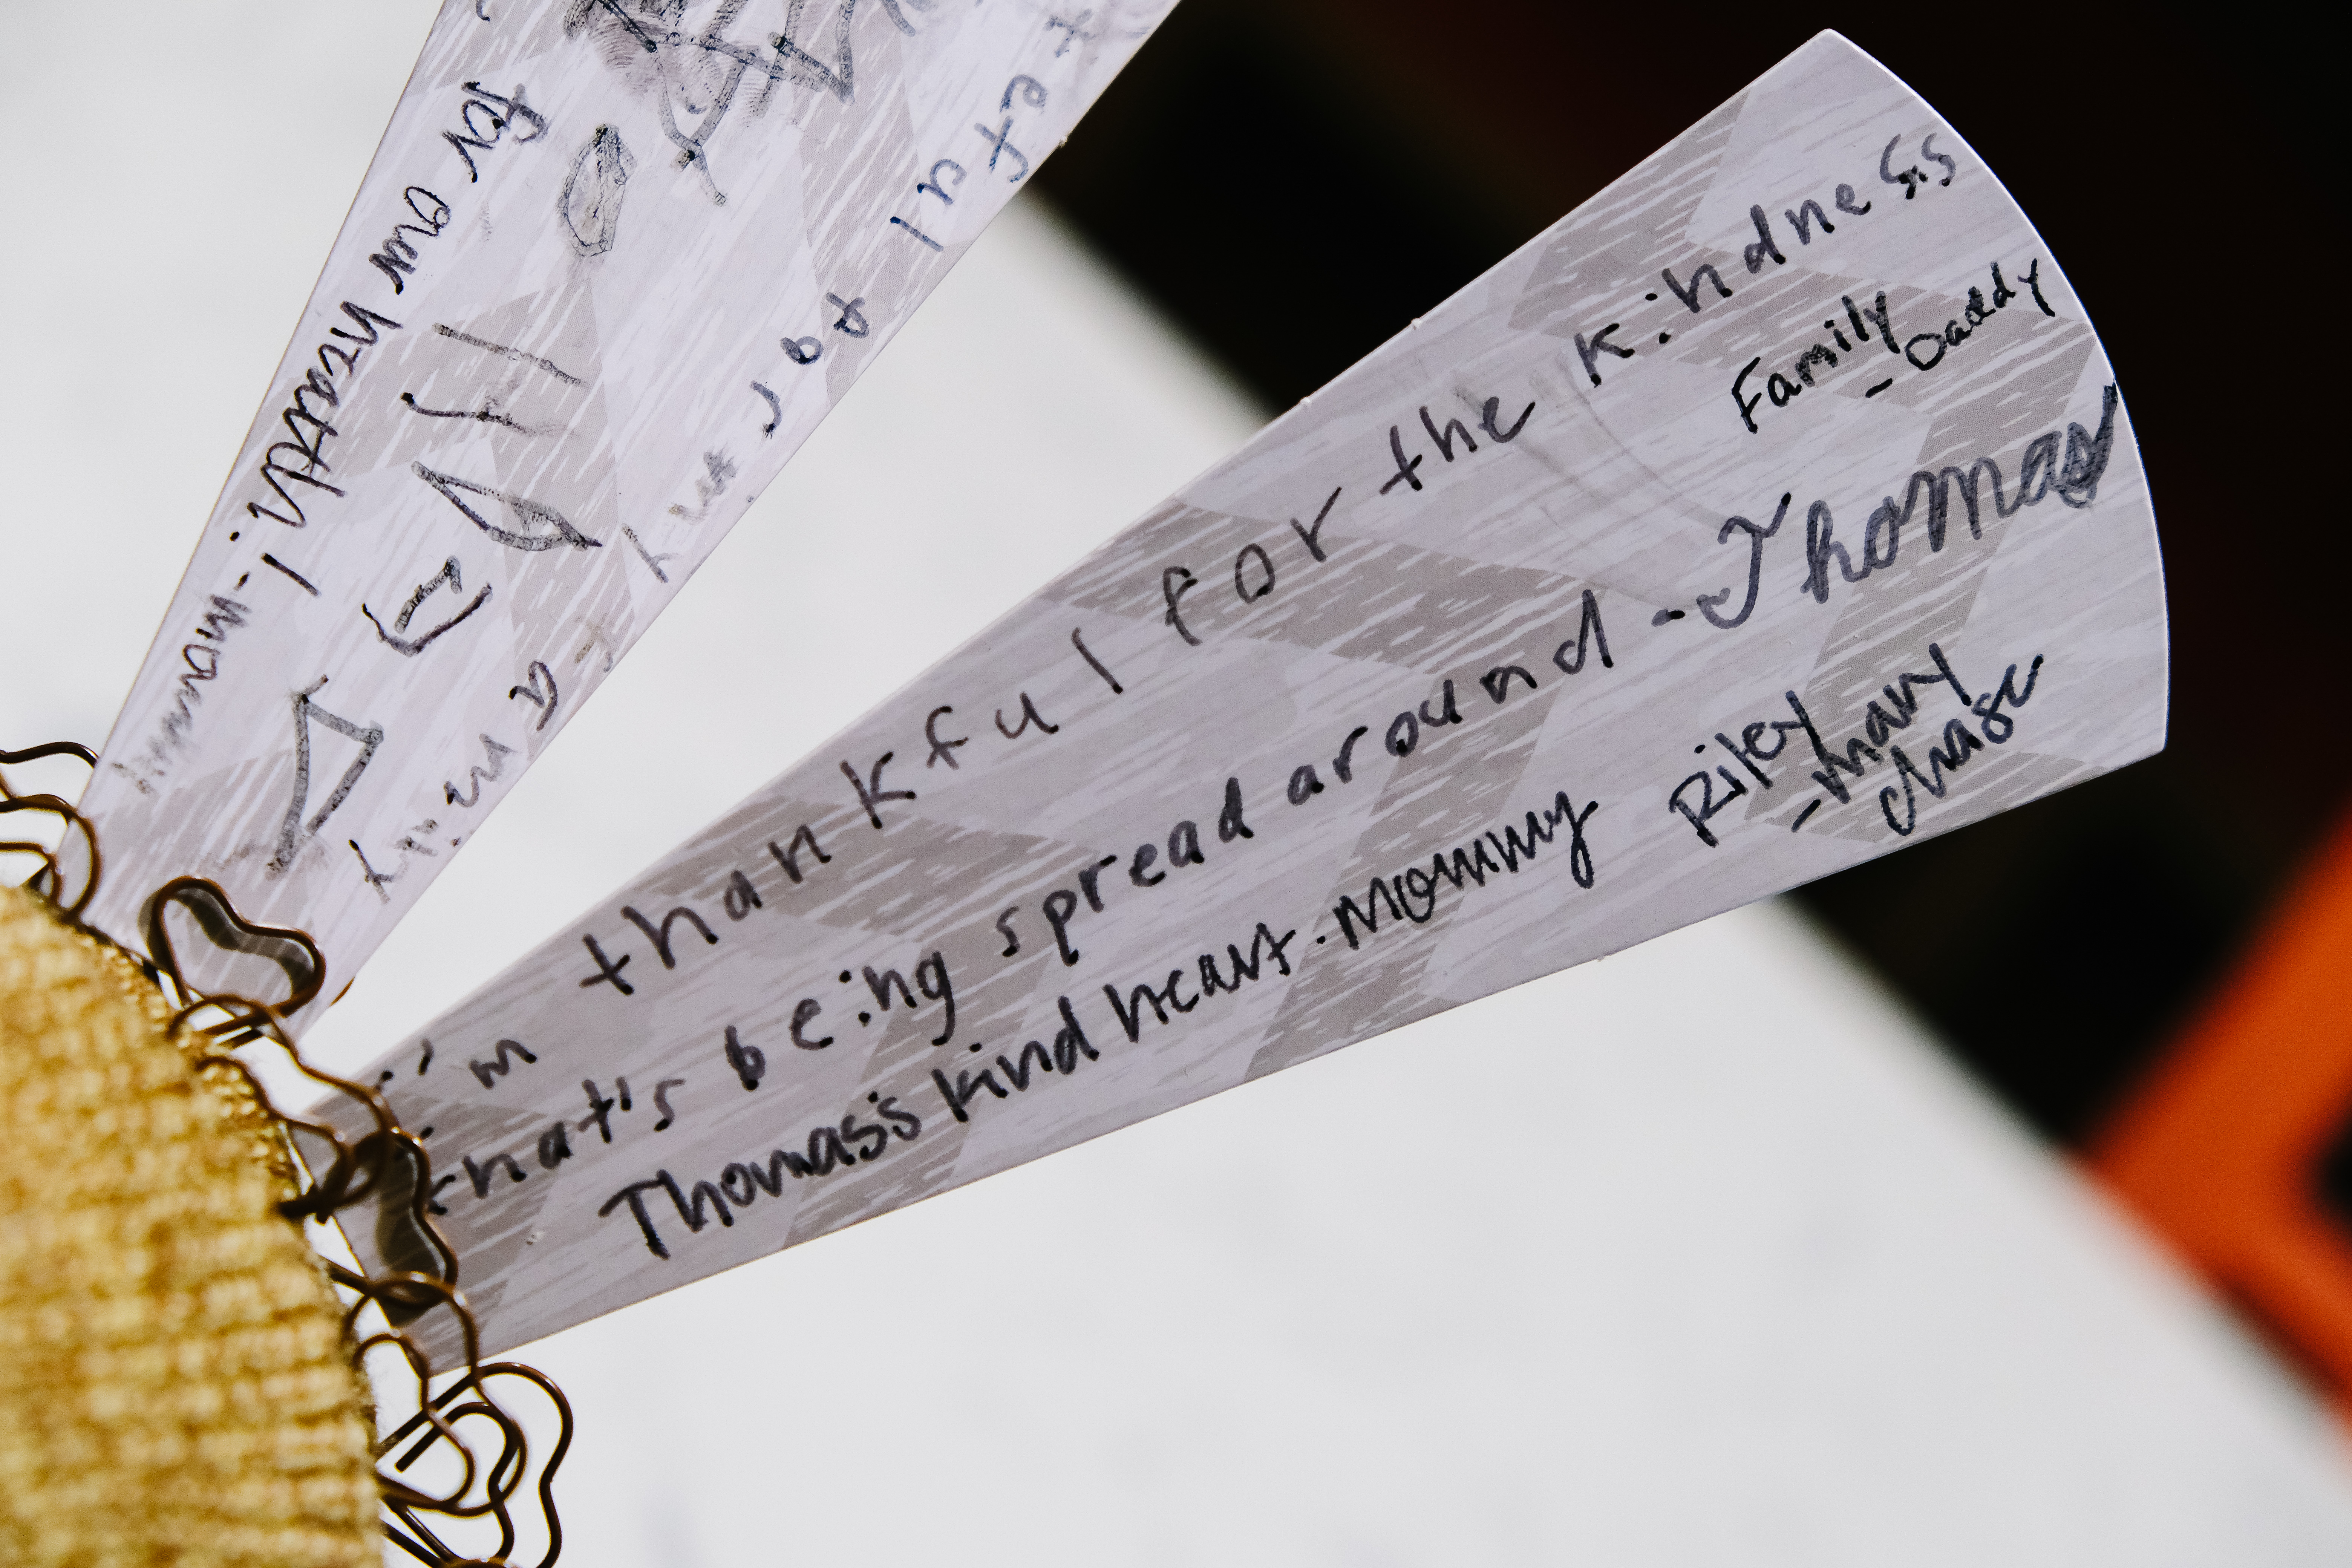 for our health! - mommy
teful for my
family
I'm thankful for the kindness
that's being spread around - Thomas
Family
- Daddy
Thomas's kind heart - mommy
Riley
- mary
chase